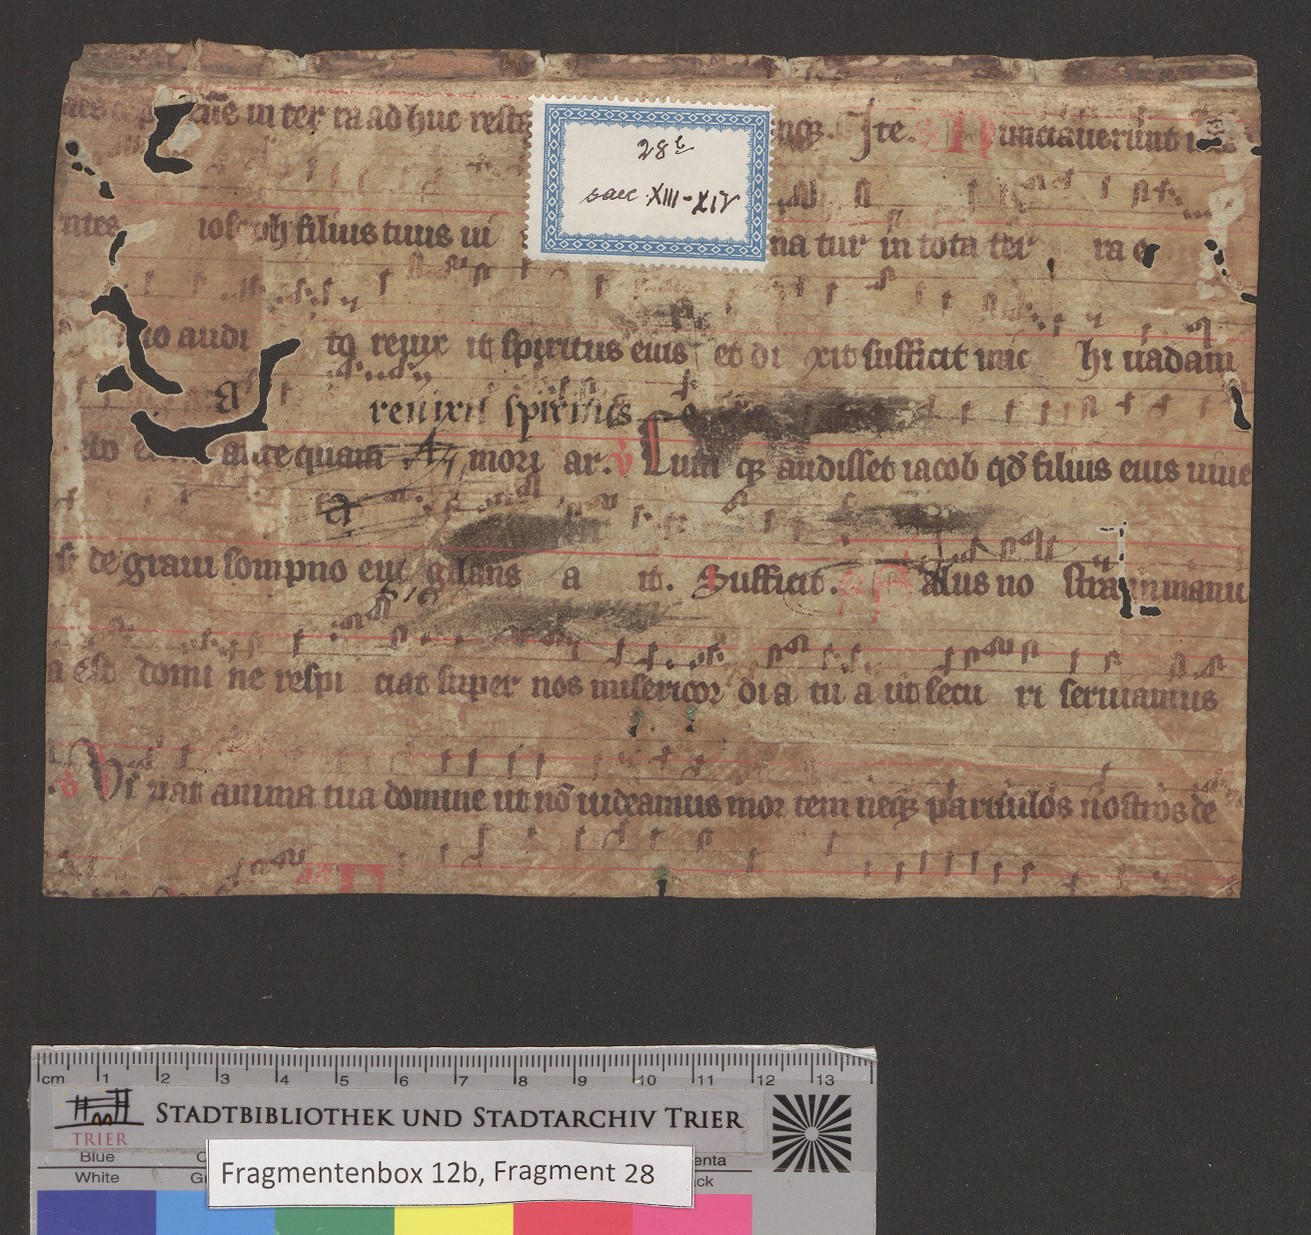 in ter ra ad huc
Ite. Nunciauerunt
28b
saec. XIII-XIV
ioseph filius tuus ui
na tur in tota ter ra
audi to reuix it spiritus eius et di xit sufficit mic hi uadam
a
reuixit spiritus
ante quam mori ar. v Cum qȝ audisset iacob qd̄ filius eius uiue
a
de graui sompno eui gilans a it. Sufficit. Salus no stra in manu
a est domi ne respi ciat super nos misericor di a tu a ut secu ri seruiamus
v Vi uat anima tua domine ut nō uideamus mor tem neqȝ paruulos nostros de
cm 1 2 3 4 5 6 7 8 9 10 11 12 13
STADTBIBLIOTHEK UND STADTARCHIV TRIER
TRIER
Blue
White
Fragmentenbox 12b, Fragment 28